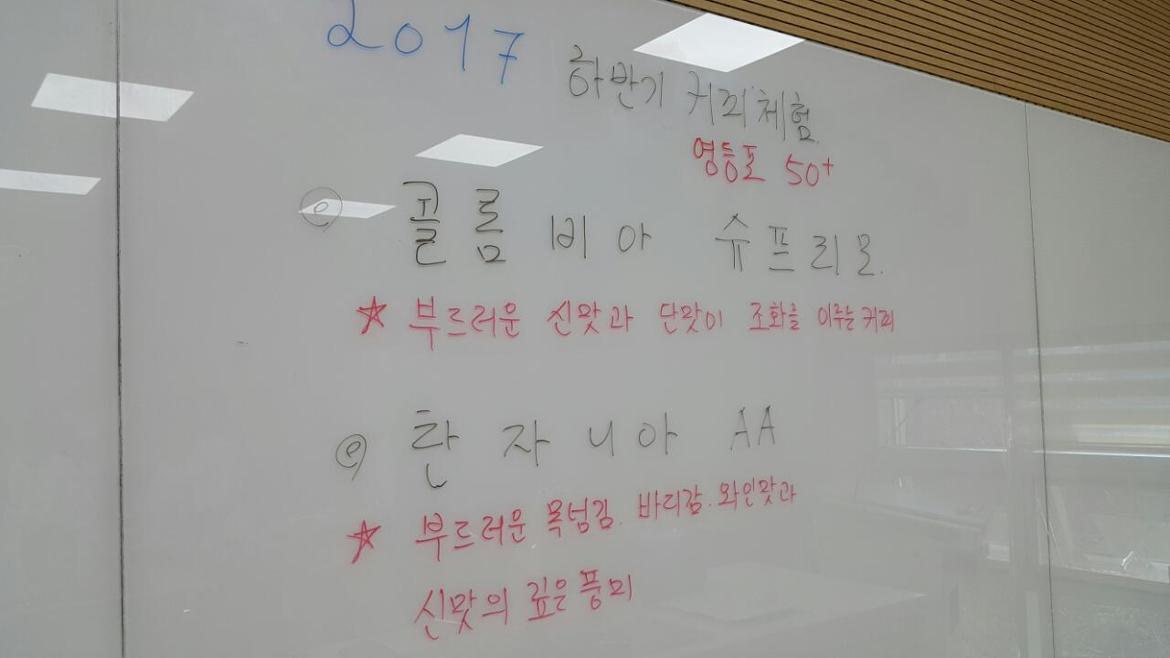 2017 하반기 커피체험
영등포 50+
e 콜롬비아 슈프리모.
☆ 부드러운 신맛과 단맛이 조화를 이루는 커피
e 탄자니아 AA
☆ 부드러운 목넘김. 바디감. 와인맛과
신맛의 깊은 풍미